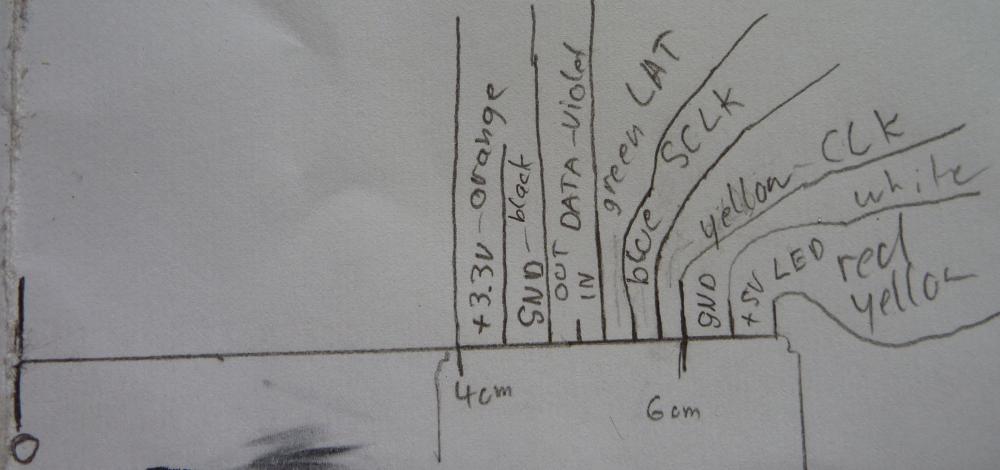 +3.3V-orange
GND-black
OUT DATA-violet
IN
green LAT
blue SCLK
yellow-CLK
GND white
+5V LED red
yellow
0
4cm
6cm